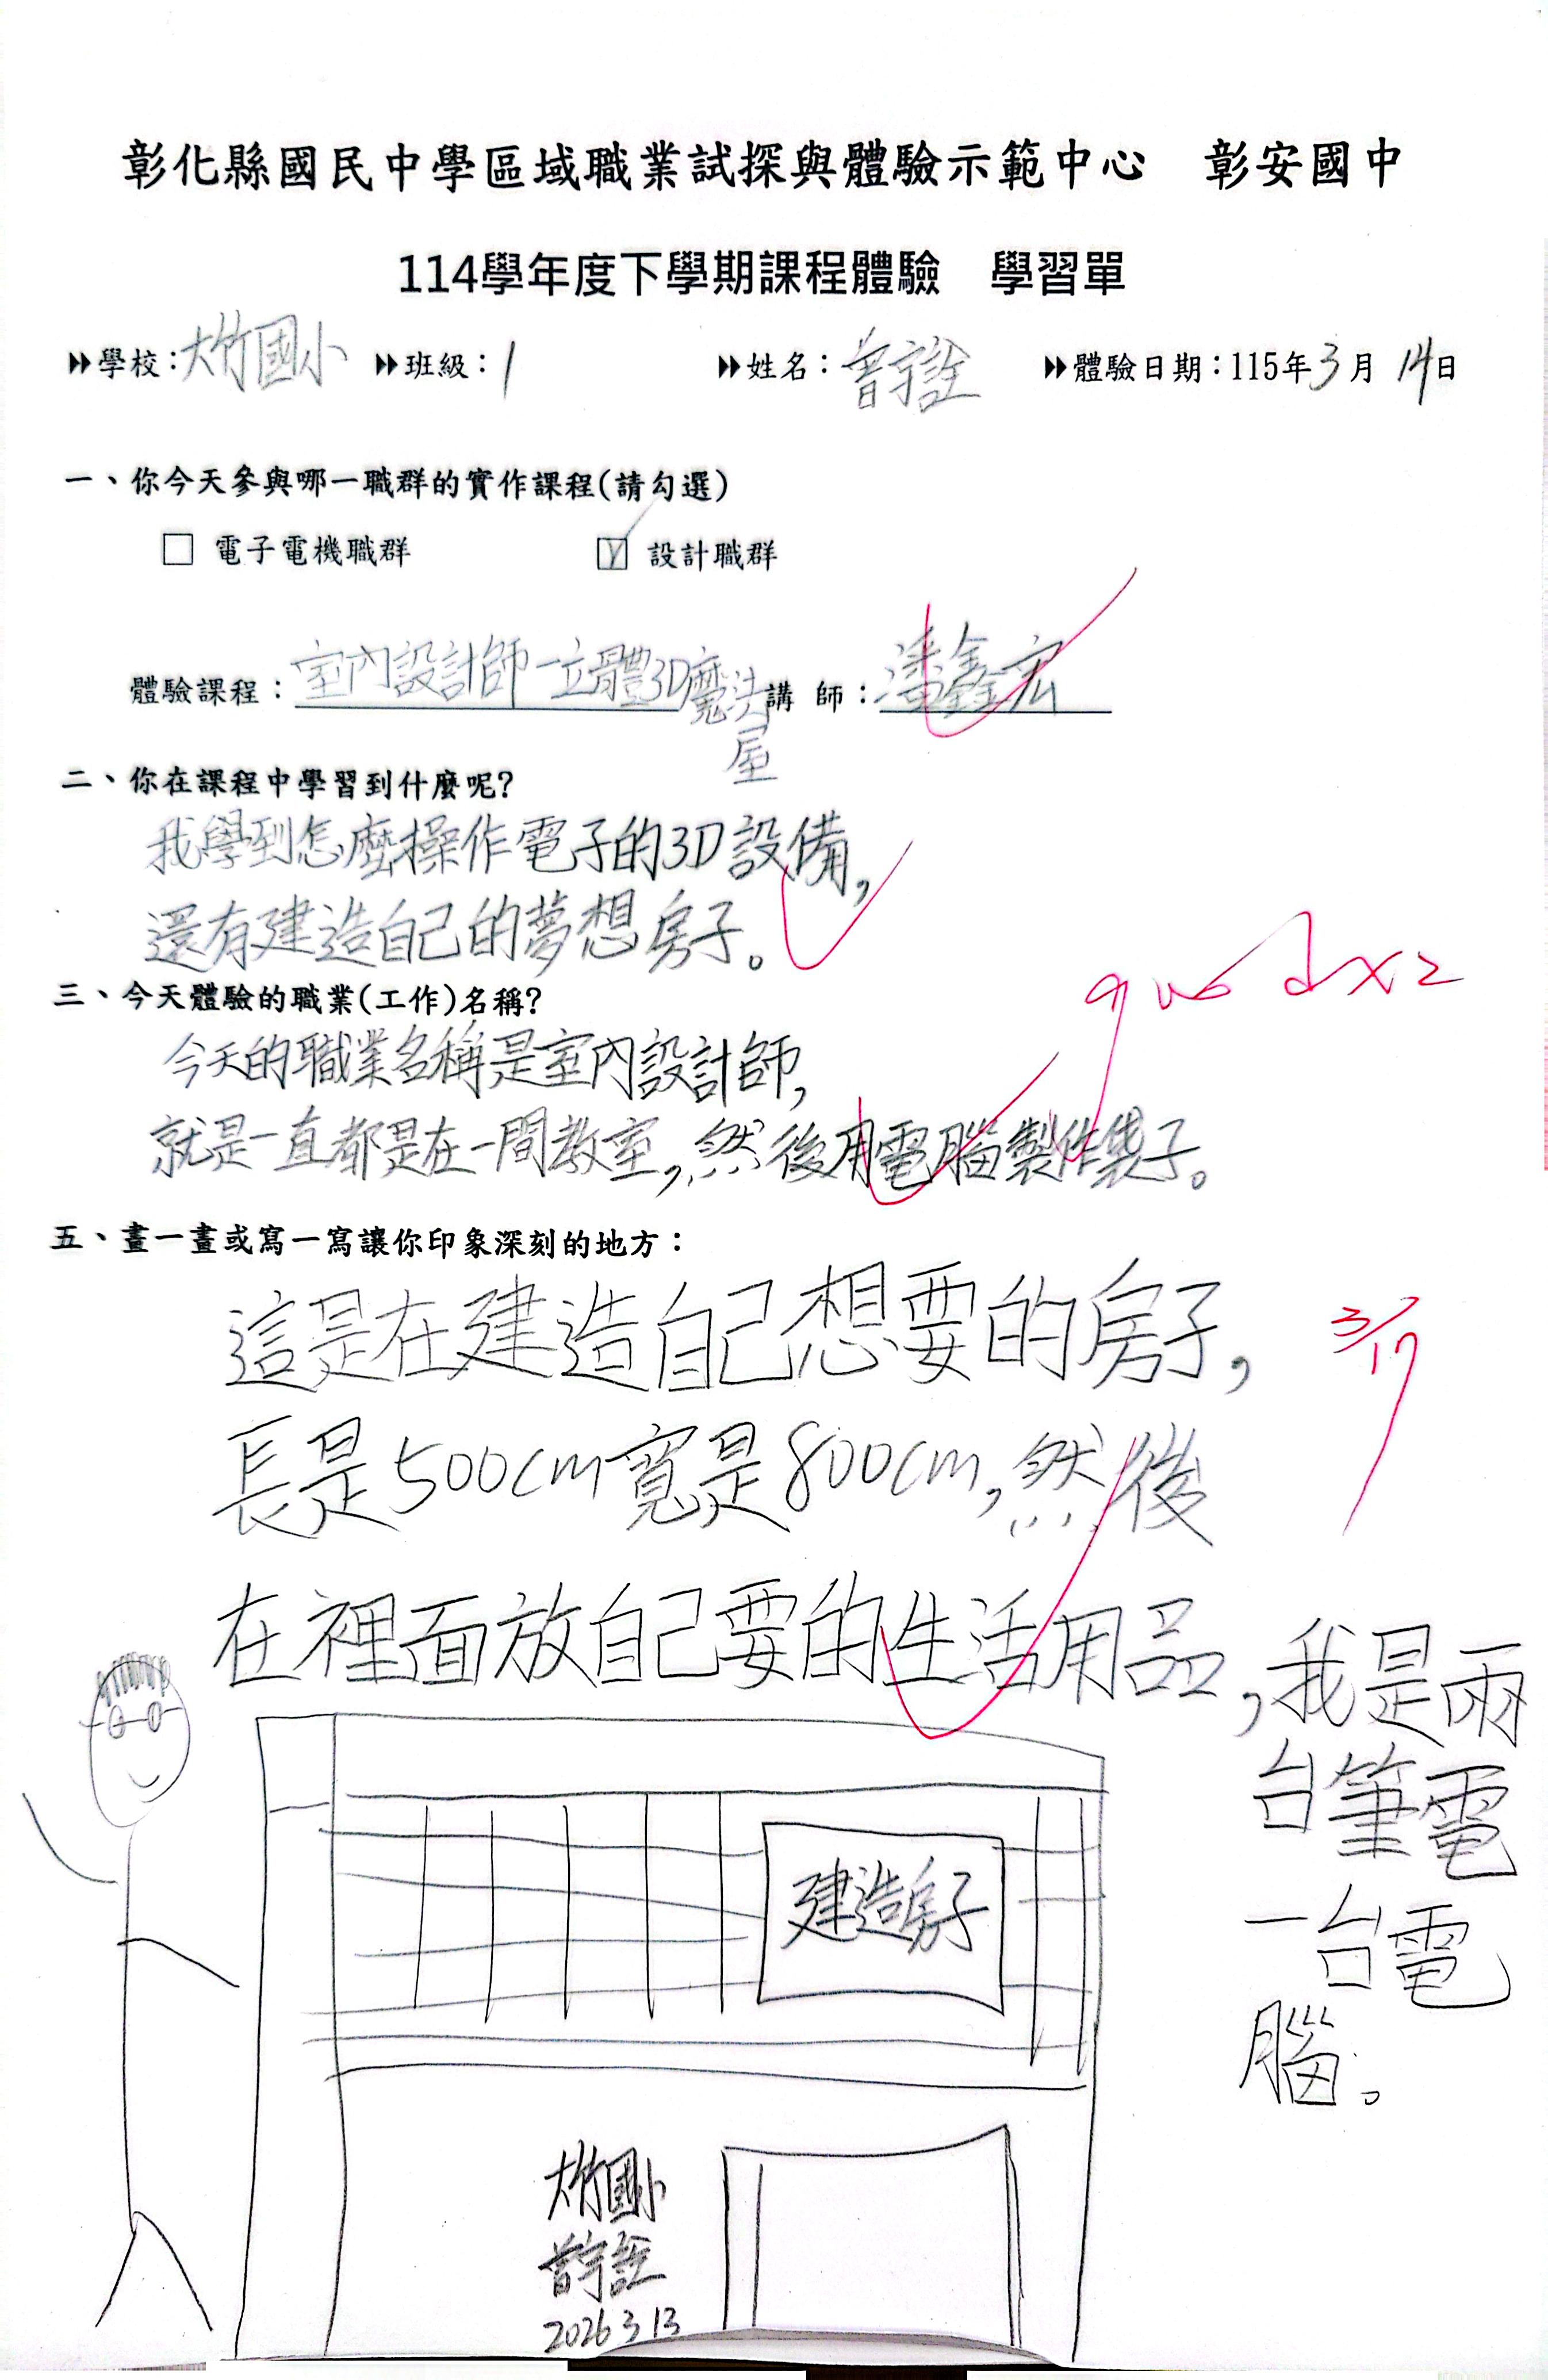 彰化縣國民中學區域職業試探與體驗示範中心　彰安國中
114學年度下學期課程體驗　學習單
▶▶學校：大竹國小 ▶▶班級：1 ▶▶姓名：曾宇詮 ▶▶體驗日期：115年3月14日
一、你今天參與哪一職群的實作課程(請勾選)
□ 電子電機職群 ☑ 設計職群
體驗課程：室內設計師-立體3D魔法屋 講 師：潘鑫宏
二、你在課程中學習到什麼呢?
我學到怎麼操作電子的3D設備,
還有建造自己的夢想房子。
三、今天體驗的職業(工作)名稱?
今天的職業名稱是室內設計師,
就是一直都是在一間教室,然後用電腦製作袋子。
五、畫一畫或寫一寫讓你印象深刻的地方：
這是在建造自己想要的房子,
3/17
長是500cm寬是800cm,然後
在裡面放自己要的生活用品,我是兩
台筆電
一台電
腦。
建造房子
大竹國小
曾宇詮
2026 3 13